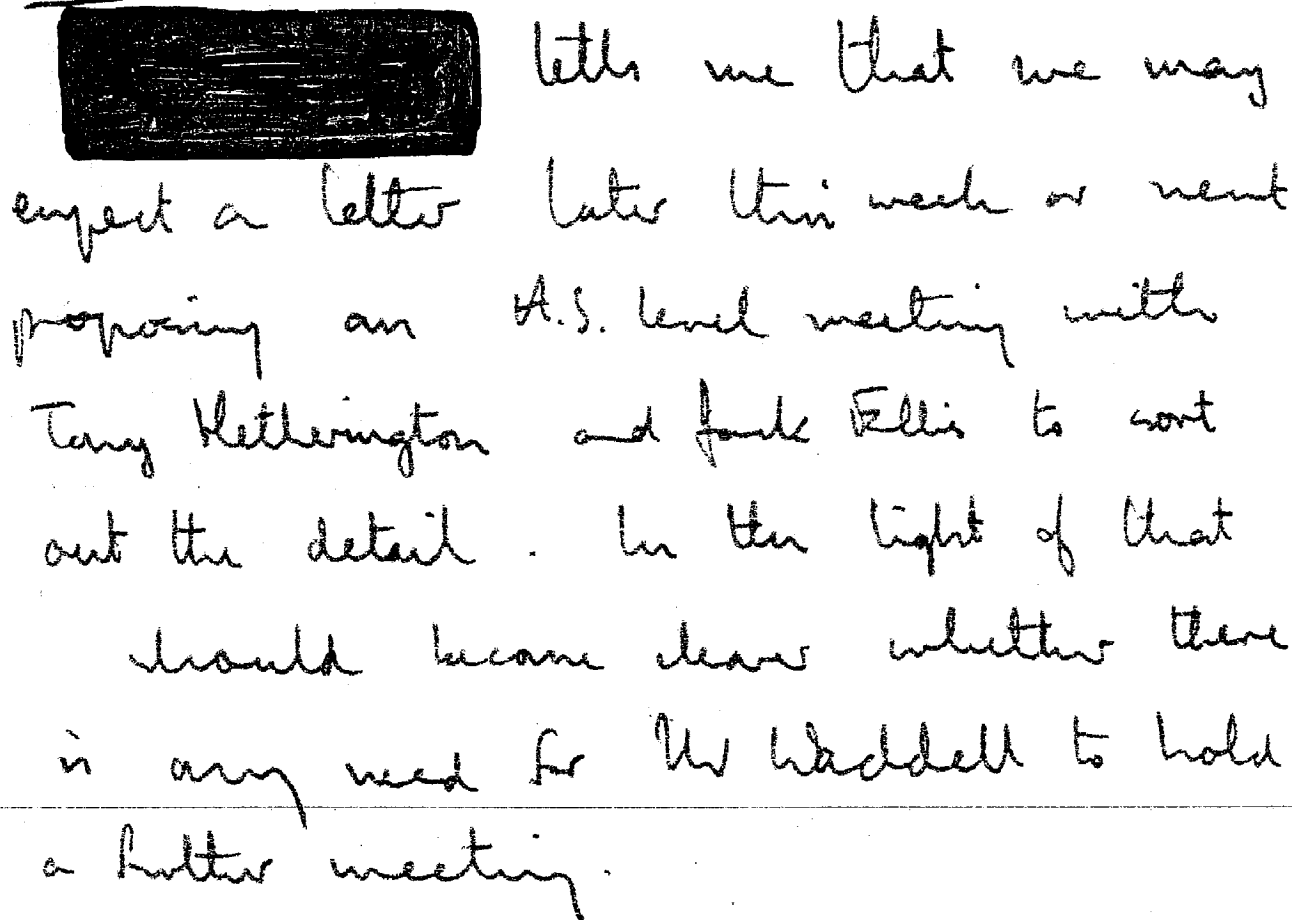 tells me that we may
expect a letter later this week or next
proposing an A.S. level meeting with
Tony Hetherington and Jack Ellis to sort
out the detail. In the light of that
should become clearer whether there
is any need for Mr Waddell to hold
a further meeting.